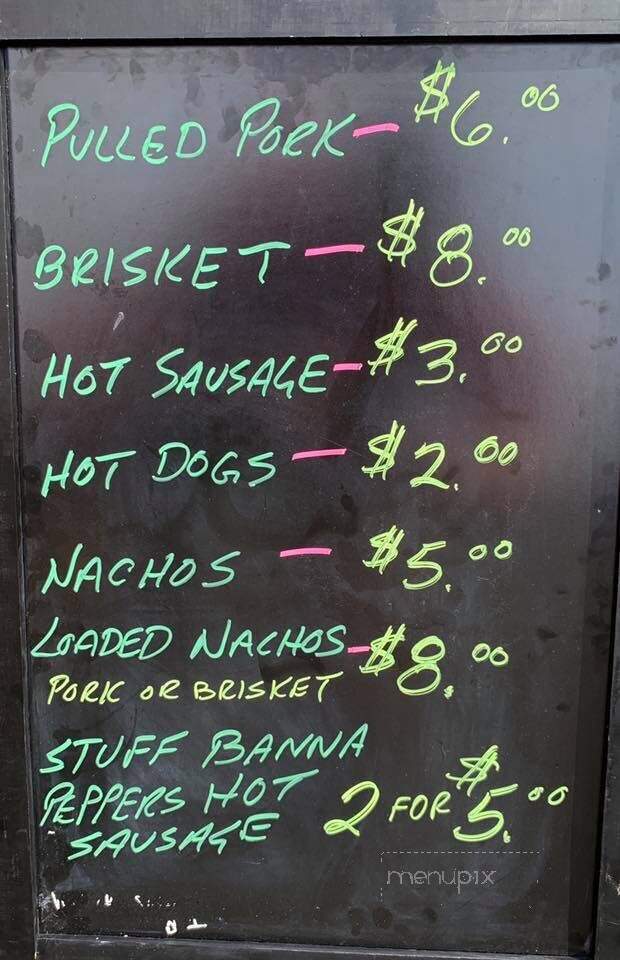 PULLED PORK - $6.00
BRISKET - $8.00
HOT SAUSAGE - $3.00
HOT DOGS - $2.00
NACHOS - $5.00
LOADED NACHOS - $8.00
PORK OR BRISKET
STUFF BANNA
PEPPERS HOT
SAUSAGE 2 FOR $5.00
menupix